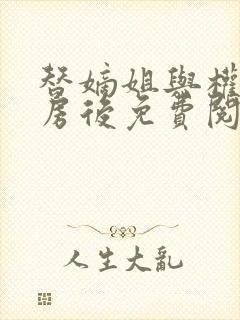 替嫡姐與權
房後免費閱
人生大亂